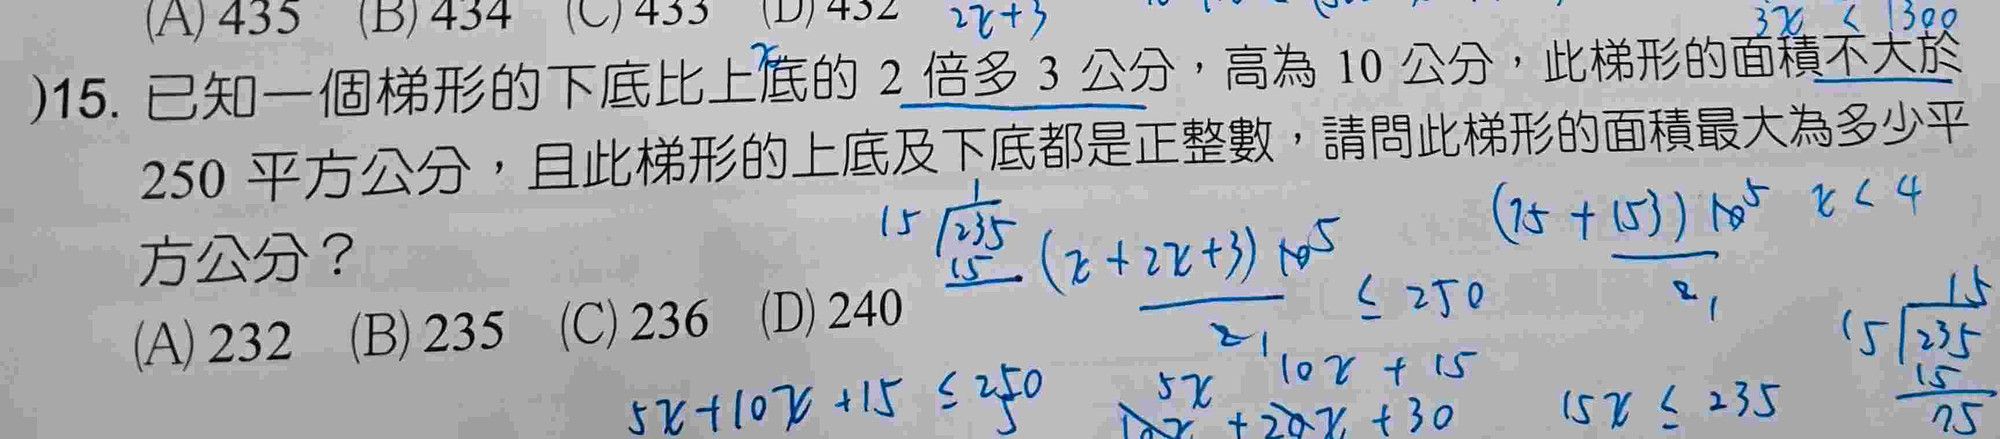 (A) 435 (B) 434 (C) 433 (D) 432 2x+3
3x < 1300
x
)15. 已知一個梯形的下底比上底的 2 倍多 3 公分，高為 10 公分，此梯形的面積不大於
250 平方公分，且此梯形的上底及下底都是正整數，請問此梯形的面積最大為多少平
方公分？
(A) 232 (B) 235 (C) 236 (D) 240
1
15 235
15
(x + 2x+3) 10 5
2 1
≤ 250
(75 + 153) 10 5
2 1
x < 4
15
15 235
15
75
5x 10x + 15
5x+10x+15 ≤ 250
10x + 20x + 30
15x ≤ 235